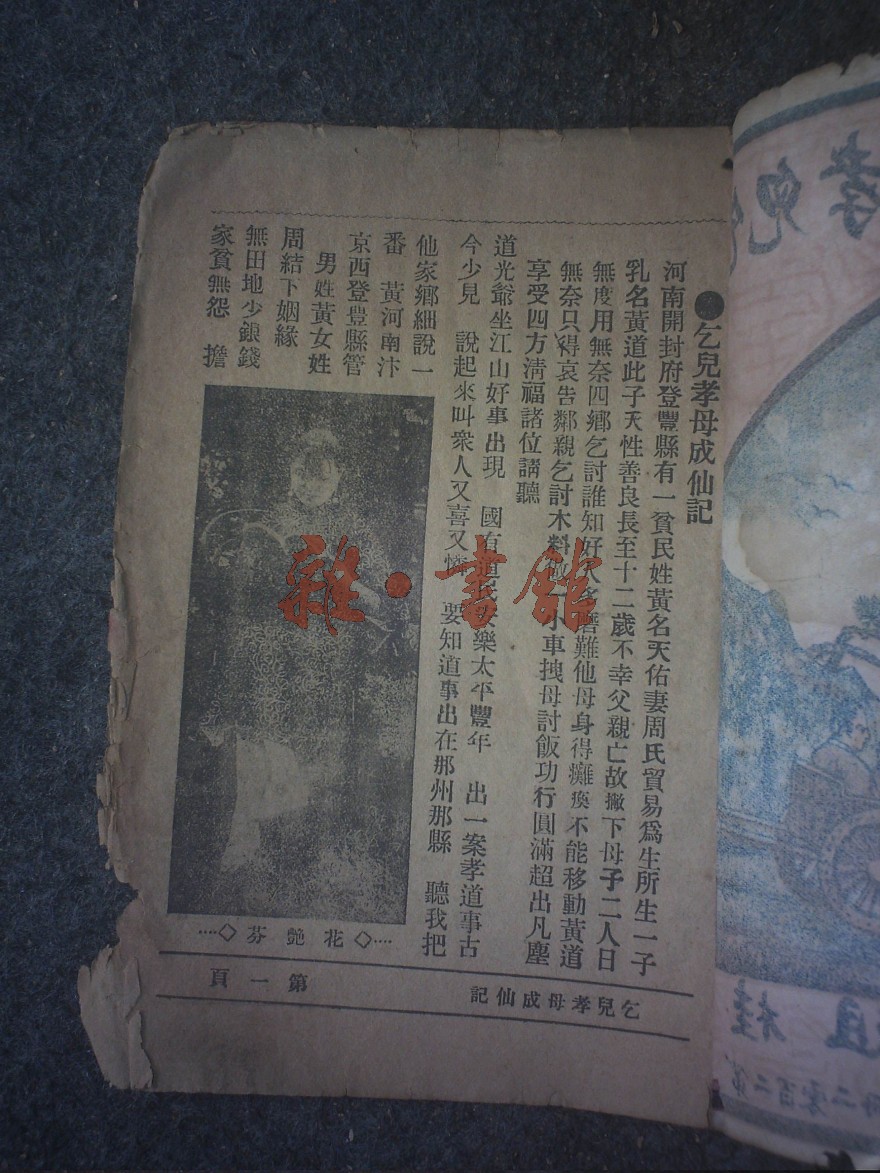 ●乞兒孝母成仙記
河南開封府登豐縣有一貧民姓黃名天佑妻周氏貿易爲生所生一子
乳名黃道此子天性善良長至十二歲不幸父親亡故撇下母子二人日
無度用無奈四鄉乞討誰知好人多磨難他母身得癱瘓不能移動黃道
無奈只得哀告鄰親乞討木料 一小車拽母討飯功行圓滿超出凡塵
享受四方淸福諸位請聽
道光爺坐江山好事出現 國有道民安樂太平豐年 出一案孝道事古
今少見 說起來叫衆人又喜又憐 要知道事出在那州那縣 聽我把
他家鄉細說一
番 黃河南汴
京西登豊縣管
男姓黃女姓
周結下姻緣
無田地少銀錢
家貧無怨 擔
花艷芬
乞兒孝母成仙記
第一頁
雜·書館
孝
兒